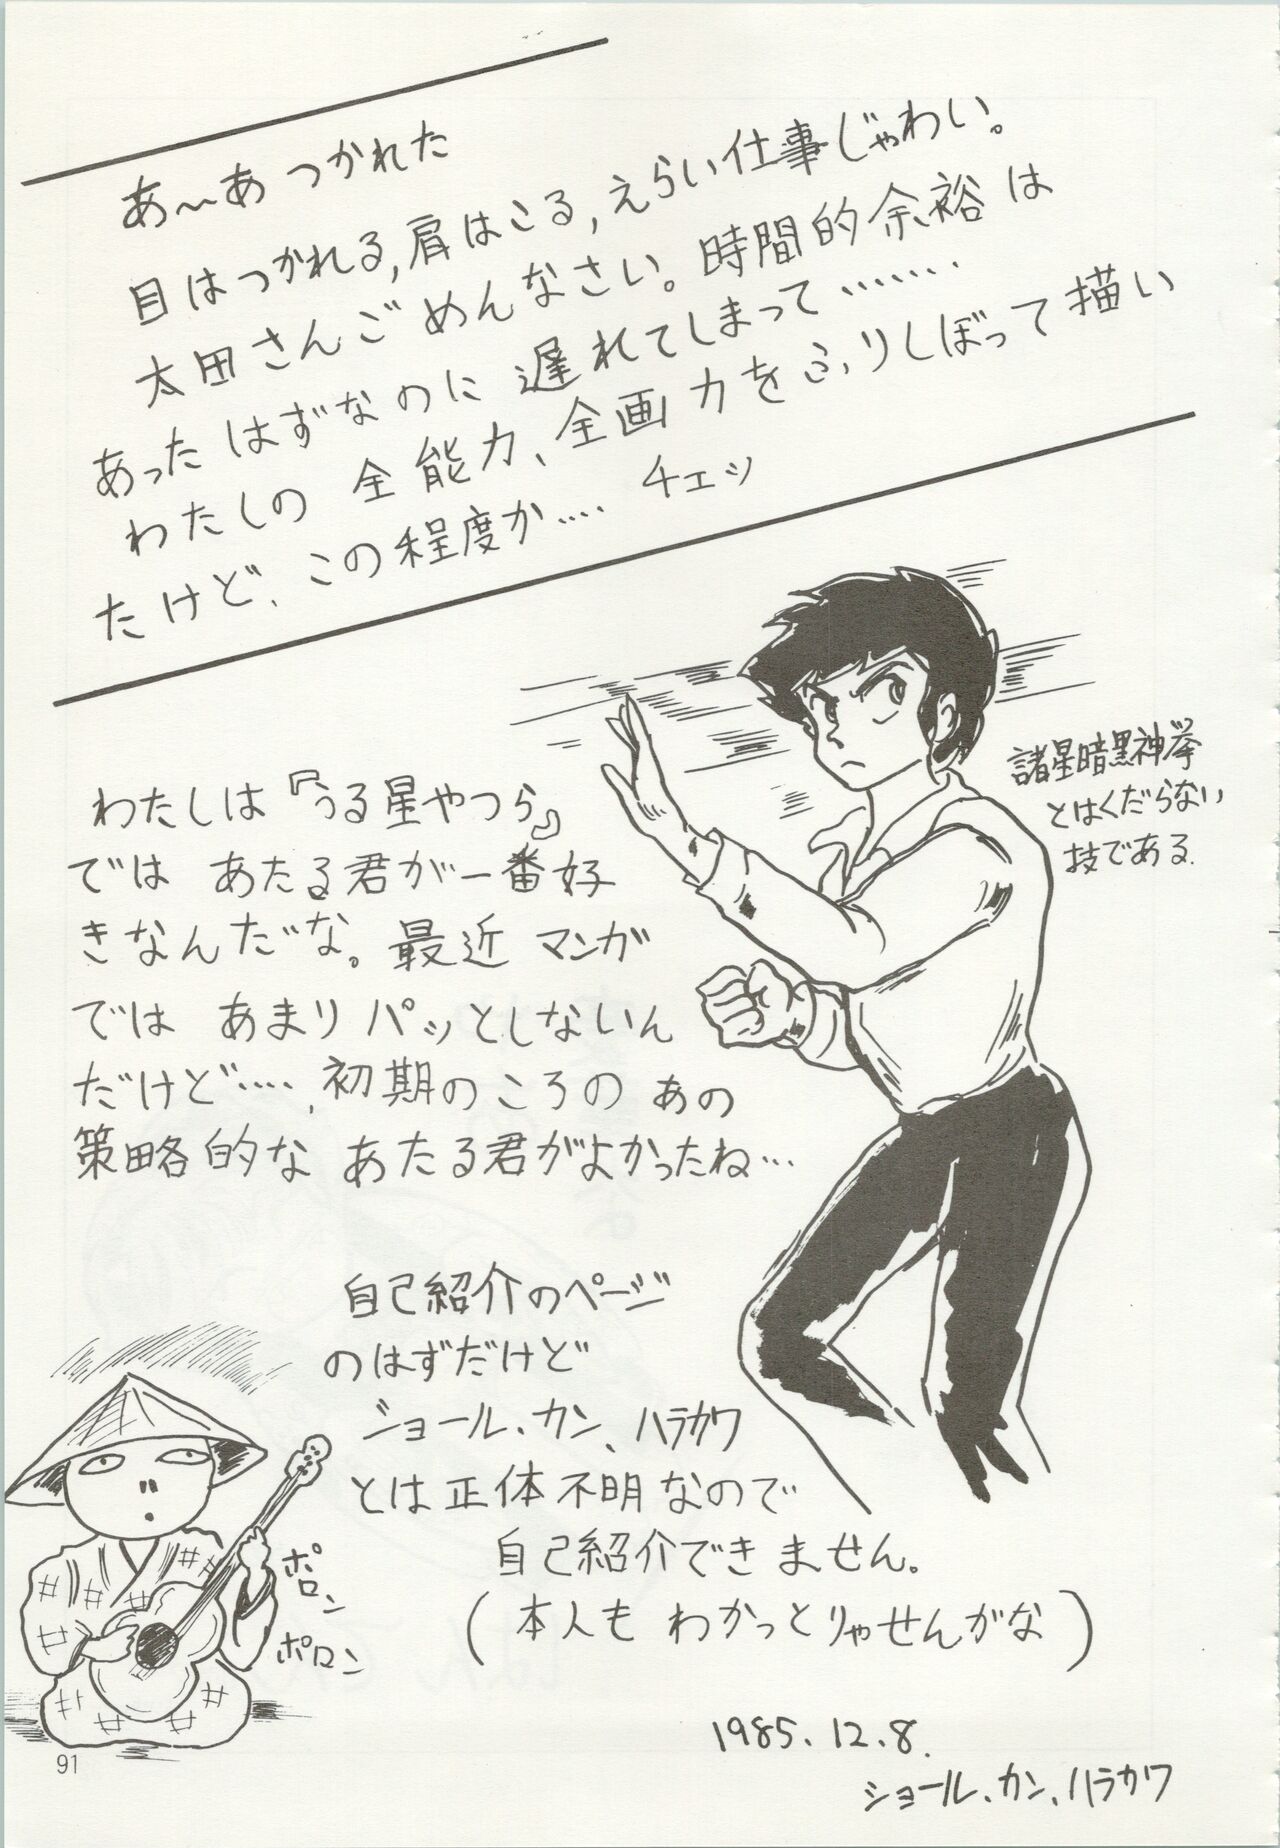 あ〜あ つかれた
目はつかれる,肩はこる,えらい仕事じゃわい。
太田さんごめんなさい。時間的余裕は
あったはずなのに遅れてしまって……
わたしの 全能力、全画力をふりしぼって描い
たけど、この程度か…. チェッ
諸星暗黒神拳
とはくだらない
技である.
わたしは『うる星やつら』
では あたる君が一番好
きなんだな。最近 マンガ
では あまりパッとしないん
だけど….初期のころの あの
策略的な あたる君がよかったね…
自己紹介のページ
のはずだけど
ショール、カン、ハラカワ
とは正体不明なので
自己紹介できません。
(本人も わかっとりゃせんがな)
ポロン
ポロン
1985.12.8.
ショール、カン、ハラカワ
91